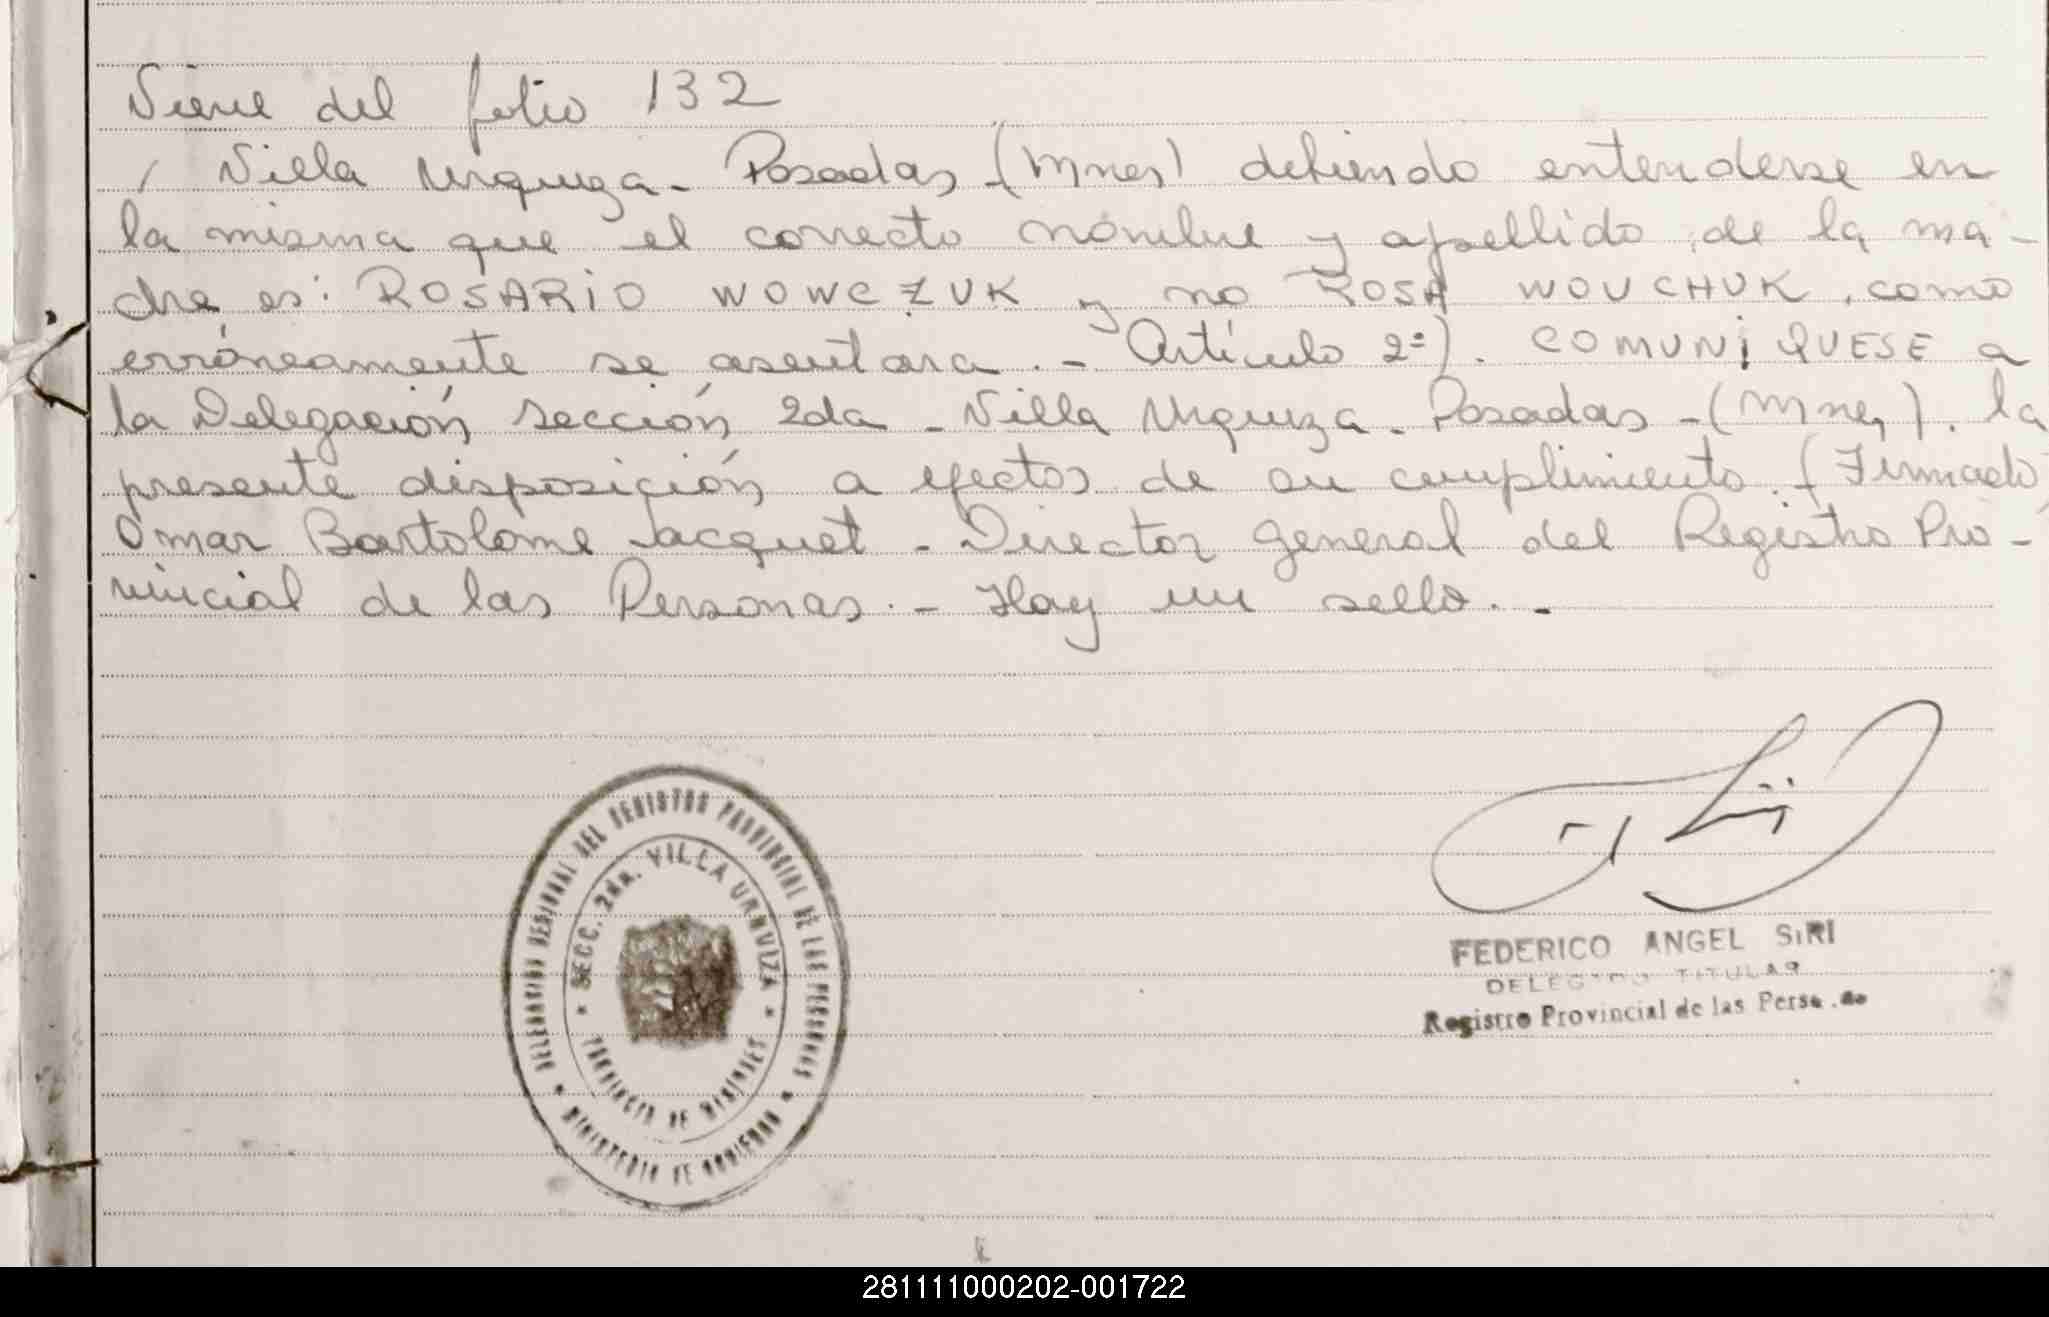 Viene del folio 132
/ Villa Urquiza - Posadas - (Mnes) debiendo entenderse en
la misma que el correcto nombre y apellido de la ma-
dre es: ROSARIO WOWCZUK y no ROSA WOUCHUK, como
erróneamente se asentara. - Artículo 2º). COMUNIQUESE a
la Delegación Sección 2da - Villa Urquiza - Posadas - (Mnes). la
presente disposición a efectos de su cumplimiento. (Firmado)
Omar Bartolome Jacquet - Director General del Registro Pro-
vincial de las Personas. - Hay un sello. -
DELEGACION REGIONAL DEL REGISTRO PROVINCIAL DE LAS PERSONAS
SECC. 2da. VILLA URQUIZA
PROVINCIA DE MISIONES
MINISTERIO DE GOBIERNO
FEDERICO ANGEL SIRI
DELEGADO TITULAR
Registro Provincial de las Personas
281111000202-001722